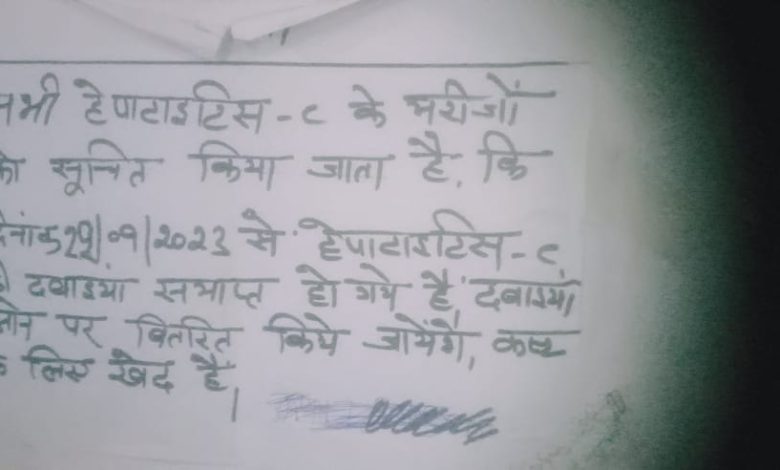 सभी हेपाटाइटिस-c के मरीजों
को सूचित किया जाता है, कि
/09/2023 से हेपाटाइटिस-c
दवाइयां समाप्त हो गये हैं, दवाइयां
पर वितरित किये जायेंगे, कष्ट
के लिए खेद है।